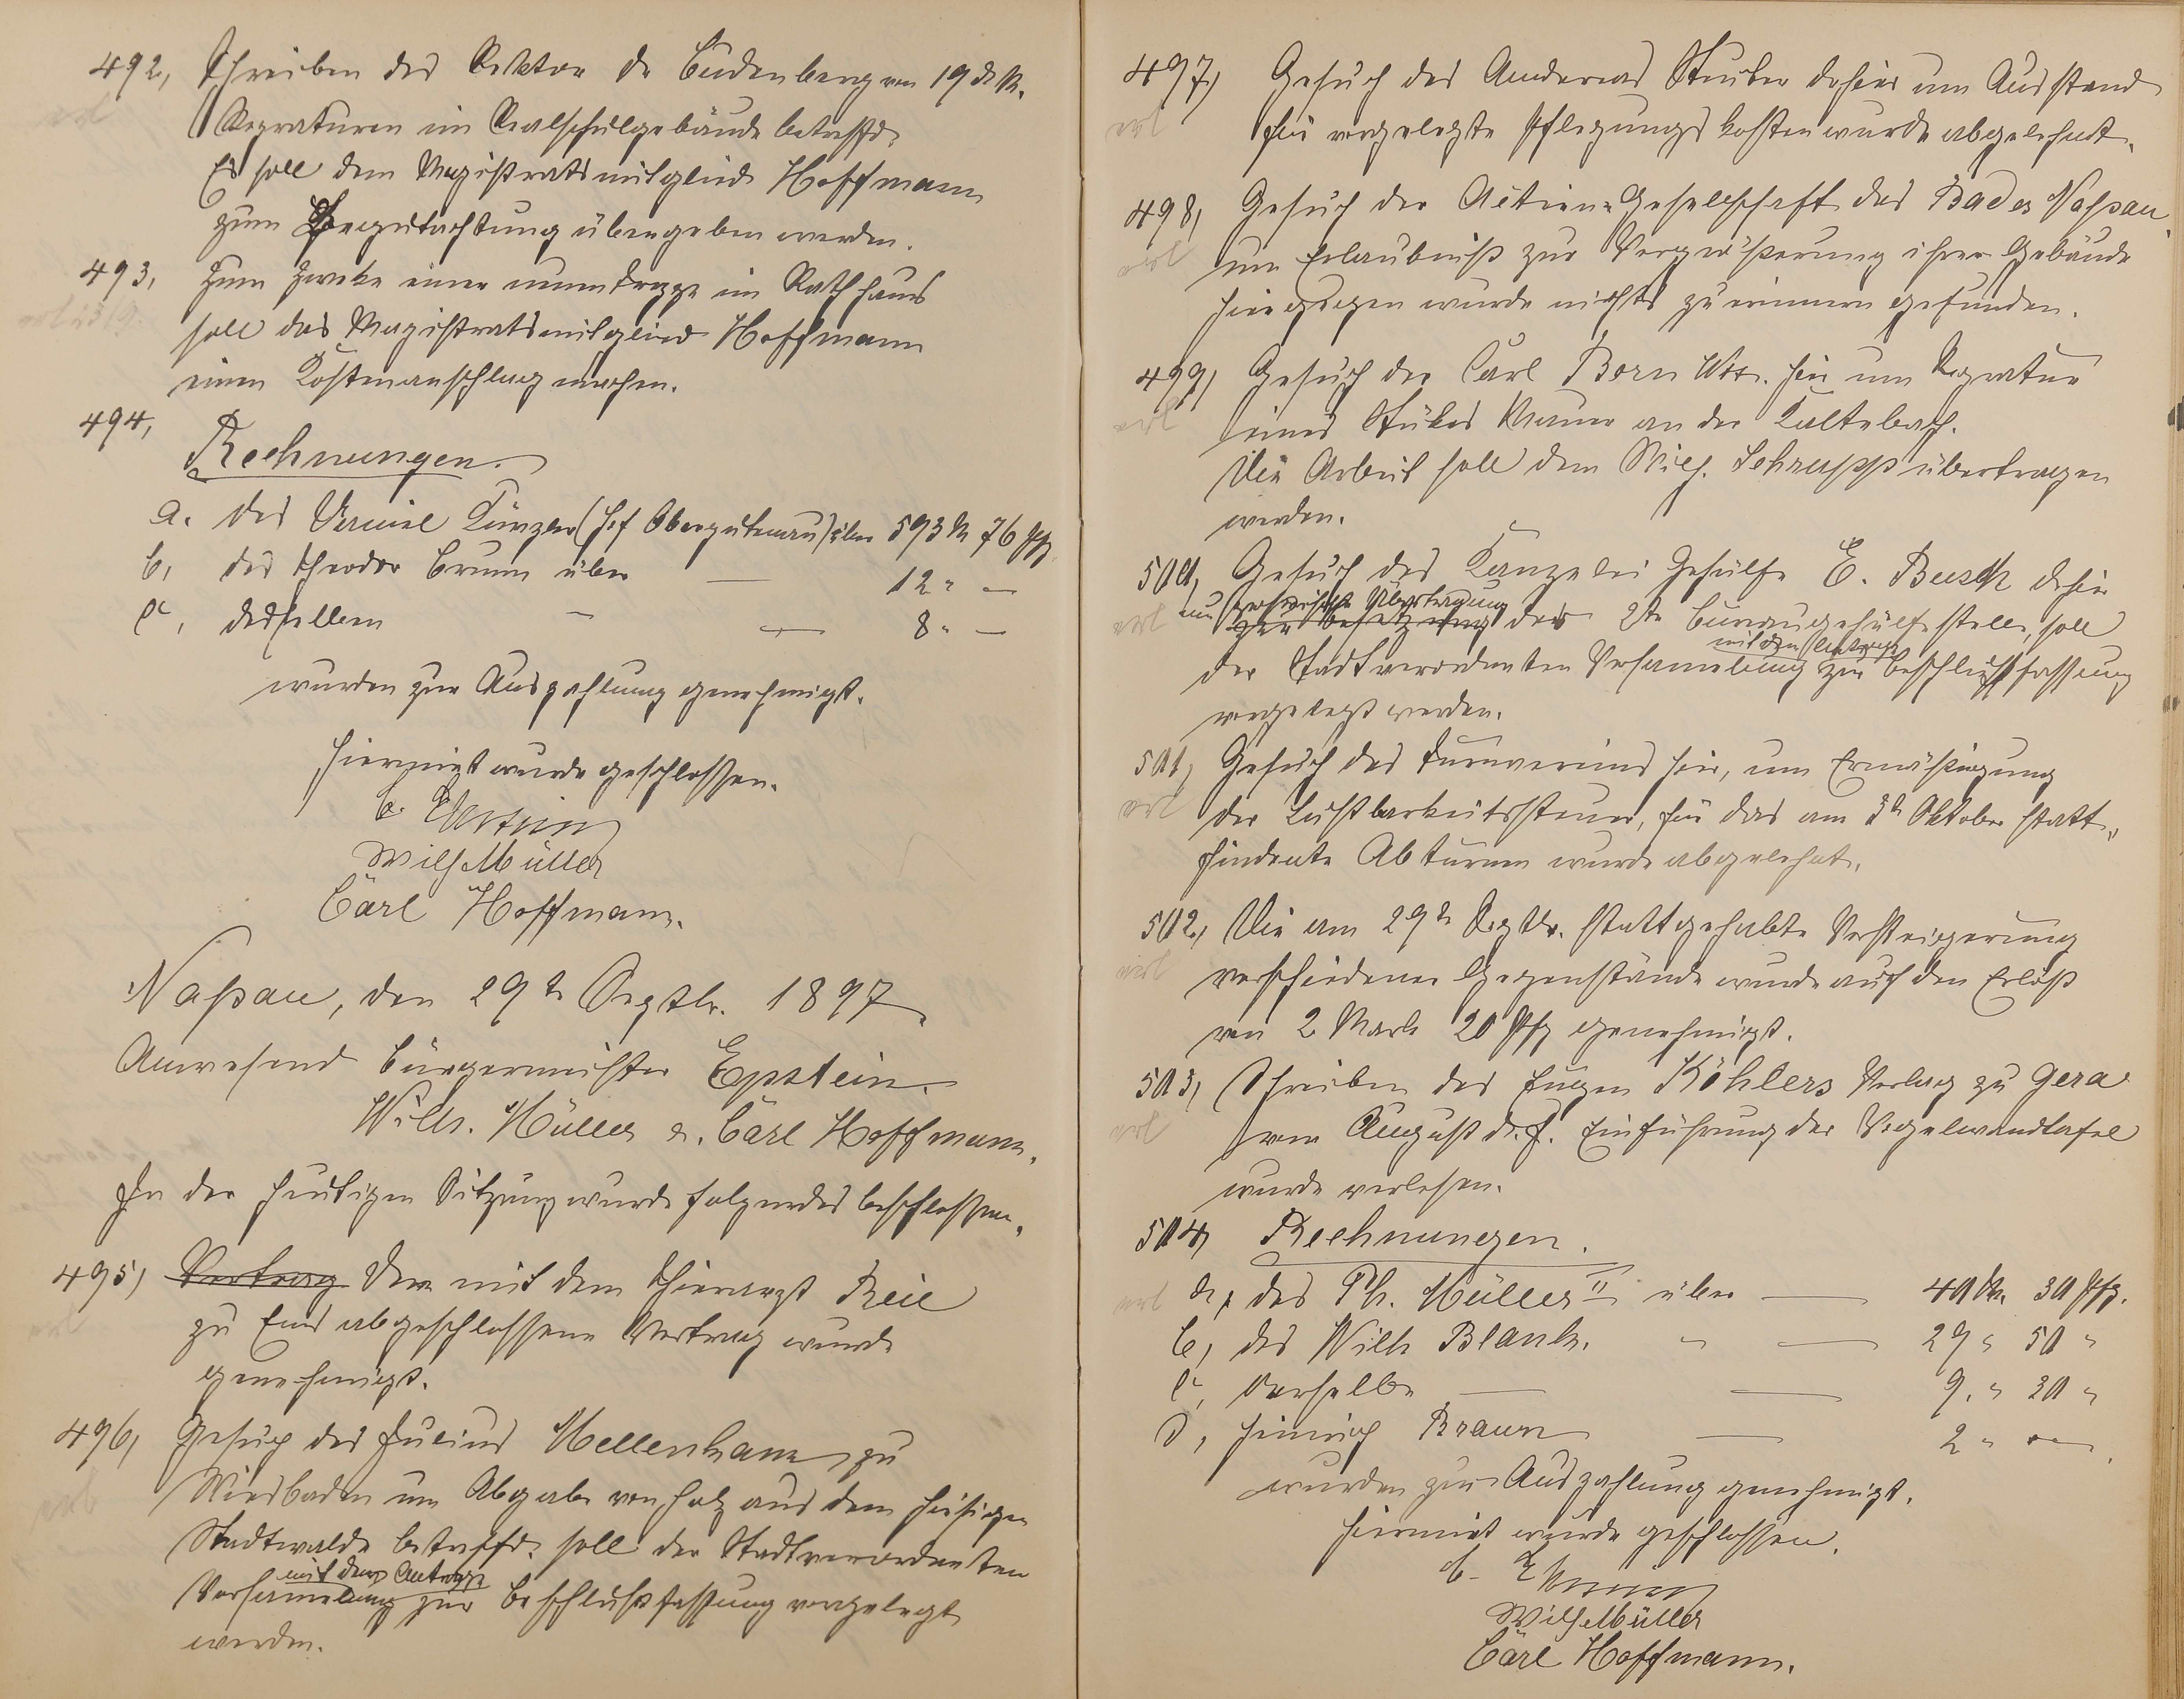 492, Schreiben des Rektor Dr Budenberg vom 19 ds M.
erl
Repraturen im Realschulgebäude betreffd.
Es soll dem Magistratsmitglied Hoffmann
zum Begutachtung übergeben werden.
493, Zum Zweke einer neuen Treppe im Rathhaus
soll das Magistratsmitglied Hoffmann
einen Kostenanschlag machen.
494,
Rechnungen.
a. des Künzler (Hof Obergutenau) über 593 M 76 Pfg
b, des Theodor Bruun über — 12 " —
c, desselben — — 8 " —
wurden zur Auszahlung genehmigt.
Hiermit wurde geschlossen.
Wilh Müller
Carl Hoffmann.
Naßau, den 29t Septbr. 1897.
Anwesend Bürgermeister Epstein.
Wilh. Müller u. Carl Hoffmann.
In der heutigen Sitzung wurde folgendes beschlossen.
495, Vertrag Der mit dem Thierarzt Reil
zu Ems abgeschlossene Vertrag wurde
genehmigt.
496, Gesuch des Julius Mellenkamp zu
Wiesbaden um Abgabe von Holz aus dem hiesigen
Stadtwalde betreffd. soll der Stadtverordneten
mit dem Antrage
Versamelung zur Beschlußfassung vorgelegt
werden.
497, Gesuch des Anderias Stuber dahier um Ausstand
erl
für vorgelegte Pflegungskosten wurde abgelehnt.
498, Gesuch der Actien-Gesellschaft des Bades Naßau
erl
um Erlaubniß zur Vergrößerung ihrer Gebäude
hiergegen wurde nichts zu erinnern gefunden.
499, Gesuch der Carl Born Wtr. hier um Repratur
erl
eines Stükes Mauer an der Kaltebach.
Die Arbeit soll dem Wilh. Schrupp übertragen
werden.
500, Gesuch des Kanzelei Gehülfe E. Busch dahier
um Übertragung
erl zur Besetzung der 2te Bureaugehülfestelle, soll
mit dem Antrage
der Stadtverordneten Versamelung zur Beschlußfassung
vorgelegt werden.
501, Gesuch des Turnvereins hier, um Ermäßigung
erl
der Lustbarkeitssteuer, für das am 3t Oktober statt-
findente Abturnen wurde abgelehnt.
502, Die am 29t Septbr. stattgehabte Versteigerung
erl
verschiedener Gegenstände wurde auf den Erlöß
von 2 Mark 20 Pfg genehmigt.
503, Schreiben des Eugen Köhlers Verlag zu Gera
erl
vom August d. J. Einführung der Vogelwandtafel
wurde verlesen.
504, Rechnungen.
erl a, des Ph. Müller II über — 40 M. 30 Pfg.
b, des Wilh Blank. " — 29 " 50 "
c, derselbe — — 9. " 20 "
d, Heinrich Braun — 2 " —
wurden zur Auszahlung genehmigt.
Hiermit wurde geschlossen.
Wilh Müller
Carl Hoffmann.